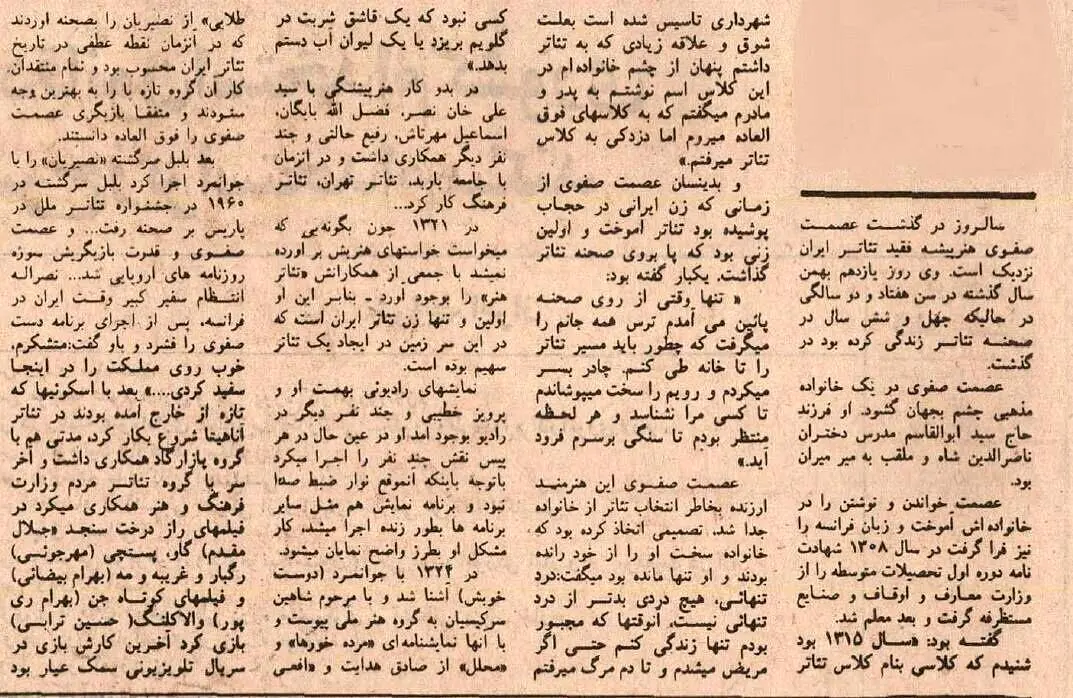 سالروز در گذشت عصمت
صفوی هنرپیشه فقید تئاتر ایران
نزدیک است. وی روز یازدهم بهمن
سال گذشته در سن هفتاد و دو سالگی
در حالیکه چهل و شش سال در
صحنه تئاتر زندگی کرده بود در
گذشت.
عصمت صفوی در یک خانواده
مذهبی چشم بجهان گشود. او فرزند
حاج سید ابوالقاسم مدرس دختران
ناصرالدین شاه و ملقب به میر میران
بود.
عصمت خواندن و نوشتن را در
خانواده‌اش آموخت و زبان فرانسه را
نیز فرا گرفت در سال ۱۳۰۸ شهادت
نامه دوره اول تحصیلات متوسطه را از
وزارت معارف و اوقاف و صنایع
مستظرفه گرفت و بعد معلم شد.
گفته بود: «سال ۱۳۱۵ بود
شنیدم که کلاسی بنام کلاس تئاتر
شهرداری تاسیس شده است بعلت
شوق و علاقه زیادی که به تئاتر
داشتم پنهان از چشم خانواده‌ام در
این کلاس اسم نوشتم به پدر و
مادرم میگفتم که به کلاسهای فوق
العاده میروم اما دزدکی به کلاس
تئاتر میرفتم.»
و بدینسان عصمت صفوی از
زمانی که زن ایرانی در حجاب
پوشیده بود تئاتر آموخت و اولین
زنی بود که پا بروی صحنه تئاتر
گذاشت. یکبار گفته بود:
« تنها وقتی از روی صحنه
پائین می آمدم ترس همه جانم را
میگرفت که چطور باید مسیر تئاتر
را تا خانه طی کنم. چادر بسر
میکردم و رویم را سخت میپوشاندم
تا کسی مرا نشناسد و هر لحظه
منتظر بودم تا سنگی برسرم فرود
آید.»
عصمت صفوی این هنرمند
ارزنده بخاطر انتخاب تئاتر از خانواده
جدا شد. تصمیمی اتخاذ کرده بود که
خانواده سخت او را از خود رانده
بودند و او تنها مانده بود میگفت:درد
تنهائی، هیچ دردی بدتر از درد
تنهائی نیست. آنوقتها که مجبور
بودم تنها زندگی کنم حتی اگر
مریض میشدم و تا دم مرگ میرفتم
کسی نبود که یک قاشق شربت در
گلویم بریزد یا یک لیوان آب دستم
بدهد.»
در بدو کار هنرپیشگی با سید
علی خان نصر، فضل الله بایگان،
اسماعیل مهرتاش، رفیع حالتی و چند
نفر دیگر همکاری داشت و در آنزمان
با جامعه باربد، تئاتر تهران، تئاتر
فرهنگ کار کرد...
در ۱۳۲۱ چون بگونه‌یی که
میخواست خواستهای هنریش بر آورده
نمیشد با جمعی از همکارانش «تئاتر
هنر» را بوجود آورد ـ بنابر این او
اولین و تنها زن تئاتر ایران است که
در این سر زمین در ایجاد یک تئاتر
سهیم بوده است.
نمایشهای رادیوئی بهمت او و
پرویز خطیبی و چند نفر دیگر در
رادیو بوجود آمد او در عین حال در هر
پیس نقش چند نفر را اجرا میکرد
باتوجه باینکه آنموقع نوار ضبط صدا
نبود و برنامه نمایش هم مثل سایر
برنامه ها بطور زنده اجرا میشد، کار
مشکل او بطرز واضح نمایان میشود.
در ۱۳۲۴ با جوانمرد (دوست
خوبش) آشنا شد و با مرحوم شاهین
سرکیسیان به گروه هنر ملی پیوست و
با آنها نمایشنامه‌ای «مرده خورها» و
«محلل» از صادق هدایت و «افعی
طلایی» از نصیریان را بصحنه آوردند
که در آنزمان نقطه عطفی در تاریخ
تئاتر ایران محسوب بود و تمام منتقدان
کار آن گروه تازه پا را به بهترین وجه
ستودند و متفقا بازیگری عصمت
صفوی را فوق العاده دانستند.
بعد بلبل سرگشته «نصیریان» را با
جوانمرد اجرا کرد بلبل سرگشته در
۱۹۶۰ در جشنواره تئاتر ملل در
پاریس بر صحنه رفت... و عصمت
صفوی و قدرت بازیگریش سوژه
روزنامه های اروپایی شد... نصراله
انتظام سفیر کبیر وقت ایران در
فرانسه، پس از اجرای برنامه دست
صفوی را فشرد و باو گفت:متشکرم،
خوب روی مملکت را در اینجا
سفید کردی....» بعد با اسکوئیها که
تازه از خارج آمده بودند در تئاتر
آناهیتا شروع بکار کرد، مدتی هم با
گروه پازارگاد همکاری داشت و آخر
سر با گروه تئاتر مردم وزارت
فرهنگ و هنر همکاری میکرد در
فیلمهای راز درخت سنجد «جلال
مقدم) گاو، پستچی (مهرجوئی)
رگبار و غریبه و مه (بهرام بیضائی)
و فیلمهای کوتاه جن (بهرام ری
پور) والاکلنگ( حسین ترابی)
بازی کرد آخرین کارش بازی در
سریال تلویزیونی سمک عیار بود